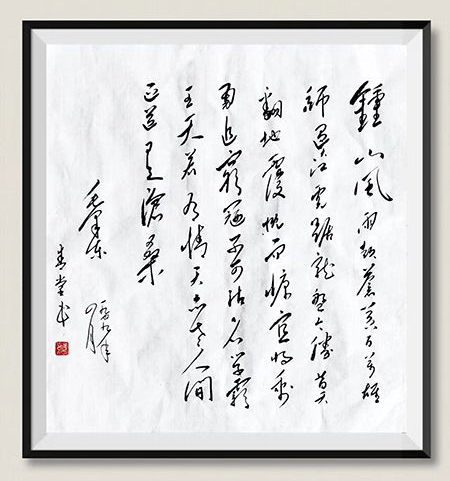 鍾山風雨起蒼黃百萬雄
師過大江虎踞龍盤今勝昔天
翻地覆慨而慷宜將剩
勇追窮寇不可沽名學霸
王天若有情天亦老人間
正道是滄桑
毛澤東
年
四月